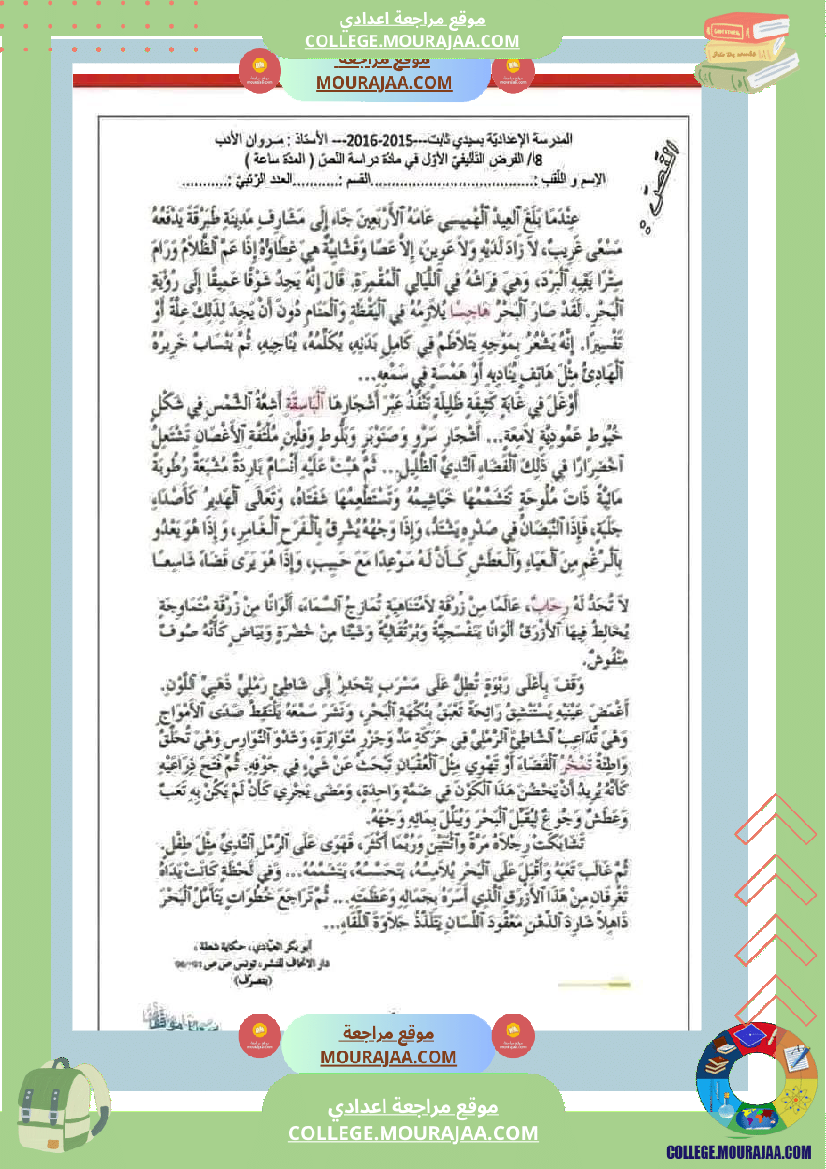 موقع مراجعة اعدادي
COLLEGE.MOURAJAA.COM
موقع مراجعة
MOURAJAA.COM
المدرسة الإعداديّة بسيدي ثابت---2015-2016--- الأستاذ : مروان الأدب
8/ الفرض التأليفيّ الأوّل في مادّة دراسة النّصّ ( المدّة ساعة )
الإسم و اللّقب :....................................القسم :...........العدد الرّتبيّ :...........
النّصّ :
عِنْدَمَا بَلَغَ الْعِيدُ الْهْمِيسِي عَامَهُ الْأَرْبَعِينَ جَاءَ إِلَى مَشَارِفِ مَدِينَةِ طَبَرْقَةَ يَدْفَعُهُ
مَسْعًى غَرِيبٌ، لاَ زَادَ لَدَيْهِ وَلاَ عَوِينَ، إِلاَّ عَصًا وَقَشَّابِيَّةٌ هِيَ غِطَاؤُهُ إِذَا عَمَّ الظَّلاَمُ وَرَامَ
سِتْرًا يَقِيهِ الْبَرْدَ، وَهْيَ فِرَاشُهُ فِي اللَّيَالِي الْمُقْمِرَةِ. قَالَ إِنَّهُ يَجِدُ شَوْقًا عَمِيقًا إِلَى رُؤْيَةِ
الْبَحْرِ. لَقَدْ صَارَ الْبَحْرُ هَاجِسًا يُلاَزِمُهُ فِي الْيَقْظَةِ وَالْمَنَامِ دُونَ أَنْ يَجِدَ لِذَلِكَ عِلَّةً أَوْ
تَفْسِيرًا. إِنَّهُ يَشْعُرُ بِمَوْجِهِ يَتَلاَطَمُ فِي كَامِلِ بَدَنِهِ، يُكَلِّمُهُ، يُنَاجِيهِ، ثُمَّ يَنْسَابُ خَرِيرُهُ
الْهَادِئُ مِثْلَ هَاتِفٍ يُنَادِيهِ أَوْ هَمْسَةٍ فِي سَمْعِهِ...
أَوْغَلَ فِي غَابَةٍ كَثِيفَةٍ ظَلِيلَةٍ تَنْفُذُ عَبْرَ أَشْجَارِهَا الْبَاسِقَةِ أَشِعَّةُ الشَّمْسِ فِي شَكْلِ
خُيُوطٍ عَمُودِيَّةٍ لاَمِعَةٍ... أَشْجَارِ سَرْوٍ وَصَنَوْبَرٍ وَبَلُّوطٍ وَفِلِّينٍ مُلْتَفَّةِ الْأَغْصَانِ تَشْتَعِلُ
اخْضِرَارًا فِي ذَلِكَ الْفَضَاءِ النَّدِيِّ الظَّلِيلِ... ثُمَّ هَبَّتْ عَلَيْهِ أَنْسَامٌ بَارِدَةٌ مُشْبَعَةٌ رُطُوبَةً
مَائِيَّةً ذَاتَ مُلُوحَةٍ تَتَشَمَّمُهَا خَيَاشِيمُهُ وَتَسْتَطْعِمُهَا شَفَتَاهُ، وَتَعَالَى الْهَدِيرُ كَأَصْدَاءِ
جَلَبَةٍ، فَإِذَا النَّبَضَانُ فِي صَدْرِهِ يَشْتَدُّ، وَإِذَا وَجْهُهُ يُشْرِقُ بِالْفَرَحِ الْغَامِرِ، وَإِذَا هُوَ يَعْدُو
بِالرَّغْمِ مِنَ الْعَيَاءِ وَالْعَطَشِ كَأَنَّ لَهُ مَوْعِدًا مَعَ حَبِيبٍ، وَإِذَا هُوَ يَرَى فَضَاءً شَاسِعًا
لاَ تُحَدُّ لَهُ رِحَابٌ، عَالَمًا مِنْ زُرْقَةٍ لاَمُتَنَاهِيَةٍ تُمَازِجُ السَّمَاءَ، أَلْوَانًا مِنْ زُرْقَةٍ مُتَمَاوِجَةٍ
يُخَالِطُ فِيهَا الْأَزْرَقُ أَلْوَانًا بَنَفْسَجِيَّةً وَبُرْتُقَالِيَّةً وَشَيْئًا مِنْ خُضْرَةٍ وَبَيَاضٍ كَأَنَّهُ صُوفٌ
مَنْفُوشٌ.
وَقَفَ بِأَعْلَى رَبْوَةٍ تُطِلُّ عَلَى مَسْرَبٍ يَنْحَدِرُ إِلَى شَاطِئٍ رَمْلِيٍّ ذَهَبِيِّ اللَّوْنِ.
أَغْمَضَ عَيْنَيْهِ يَسْتَنْشِقُ رَائِحَةً تَعْبَقُ بِنُكْهَةِ الْبَحْرِ، وَنَشَرَ سَمْعَهُ يَلْتَقِطُ صَدَى الْأَمْوَاجِ
وَهْيَ تُدَاعِبُ الشَّاطِئَ الرَّمْلِيَّ فِي حَرَكَةِ مَدٍّ وَجَزْرٍ مُتَوَاتِرَةٍ، وَشَدْوَ النَّوَارِسِ وَهْيَ تُحَلِّقُ
وَاطِئَةً تَمْخُرُ الْفَضَاءَ أَوْ تَهْوِي مِثْلَ الْعُقْبَانِ تَبْحَثُ عَنْ شَيْءٍ فِي جَوْفِهِ. ثُمَّ فَتَحَ ذِرَاعَيْهِ
كَأَنَّهُ يُرِيدُ أَنْ يَحْضُنَ هَذَا الْكَوْنَ فِي ضَمَّةٍ وَاحِدَةٍ، وَمَضَى يَجْرِي كَأَنْ لَمْ يَكُنْ بِهِ تَعَبٌ
وَعَطَشٌ وَجُوعٌ لِيُقَبِّلَ الْبَحْرَ وَيُبَلِّلَ بِمَائِهِ وَجْهَهُ.
تَشَابَكَتْ رِجْلاَهُ مَرَّةً وَاثْنَتَيْنِ وَرُبَّمَا أَكْثَرَ، فَهَوَى عَلَى الرَّمْلِ النَّدِيِّ مِثْلَ طِفْلٍ.
ثُمَّ غَالَبَ تَعَبَهُ وَأَقْبَلَ عَلَى الْبَحْرِ يُلاَمِسُهُ، يَتَحَسَّسُهُ، يَتَشَمَّمُهُ... وَفِي لَحْظَةٍ كَانَتْ يَدَاهُ
تَغْرِفَانِ مِنْ هَذَا الْأَزْرَقِ الَّذِي أَسَرَهُ بِجَمَالِهِ وَعَظَمَتِهِ... ثُمَّ تَرَاجَعَ خُطُوَاتٍ يَتَأَمَّلُ الْبَحْرَ
ذَاهِلاً شَارِدَ الذِّهْنِ مَعْقُودَ اللِّسَانِ يَتَلَذَّذُ حَلاَوَةَ اللِّقَاءِ...
أبو بكر العيّادي، حكاية شعلة،
دار الإتحاف للنشر، تونس ص ص
(بتصرّف)
موقع مراجعة
MOURAJAA.COM
موقع مراجعة اعدادي
COLLEGE.MOURAJAA.COM
COLLEGE.MOURAJAA.COM